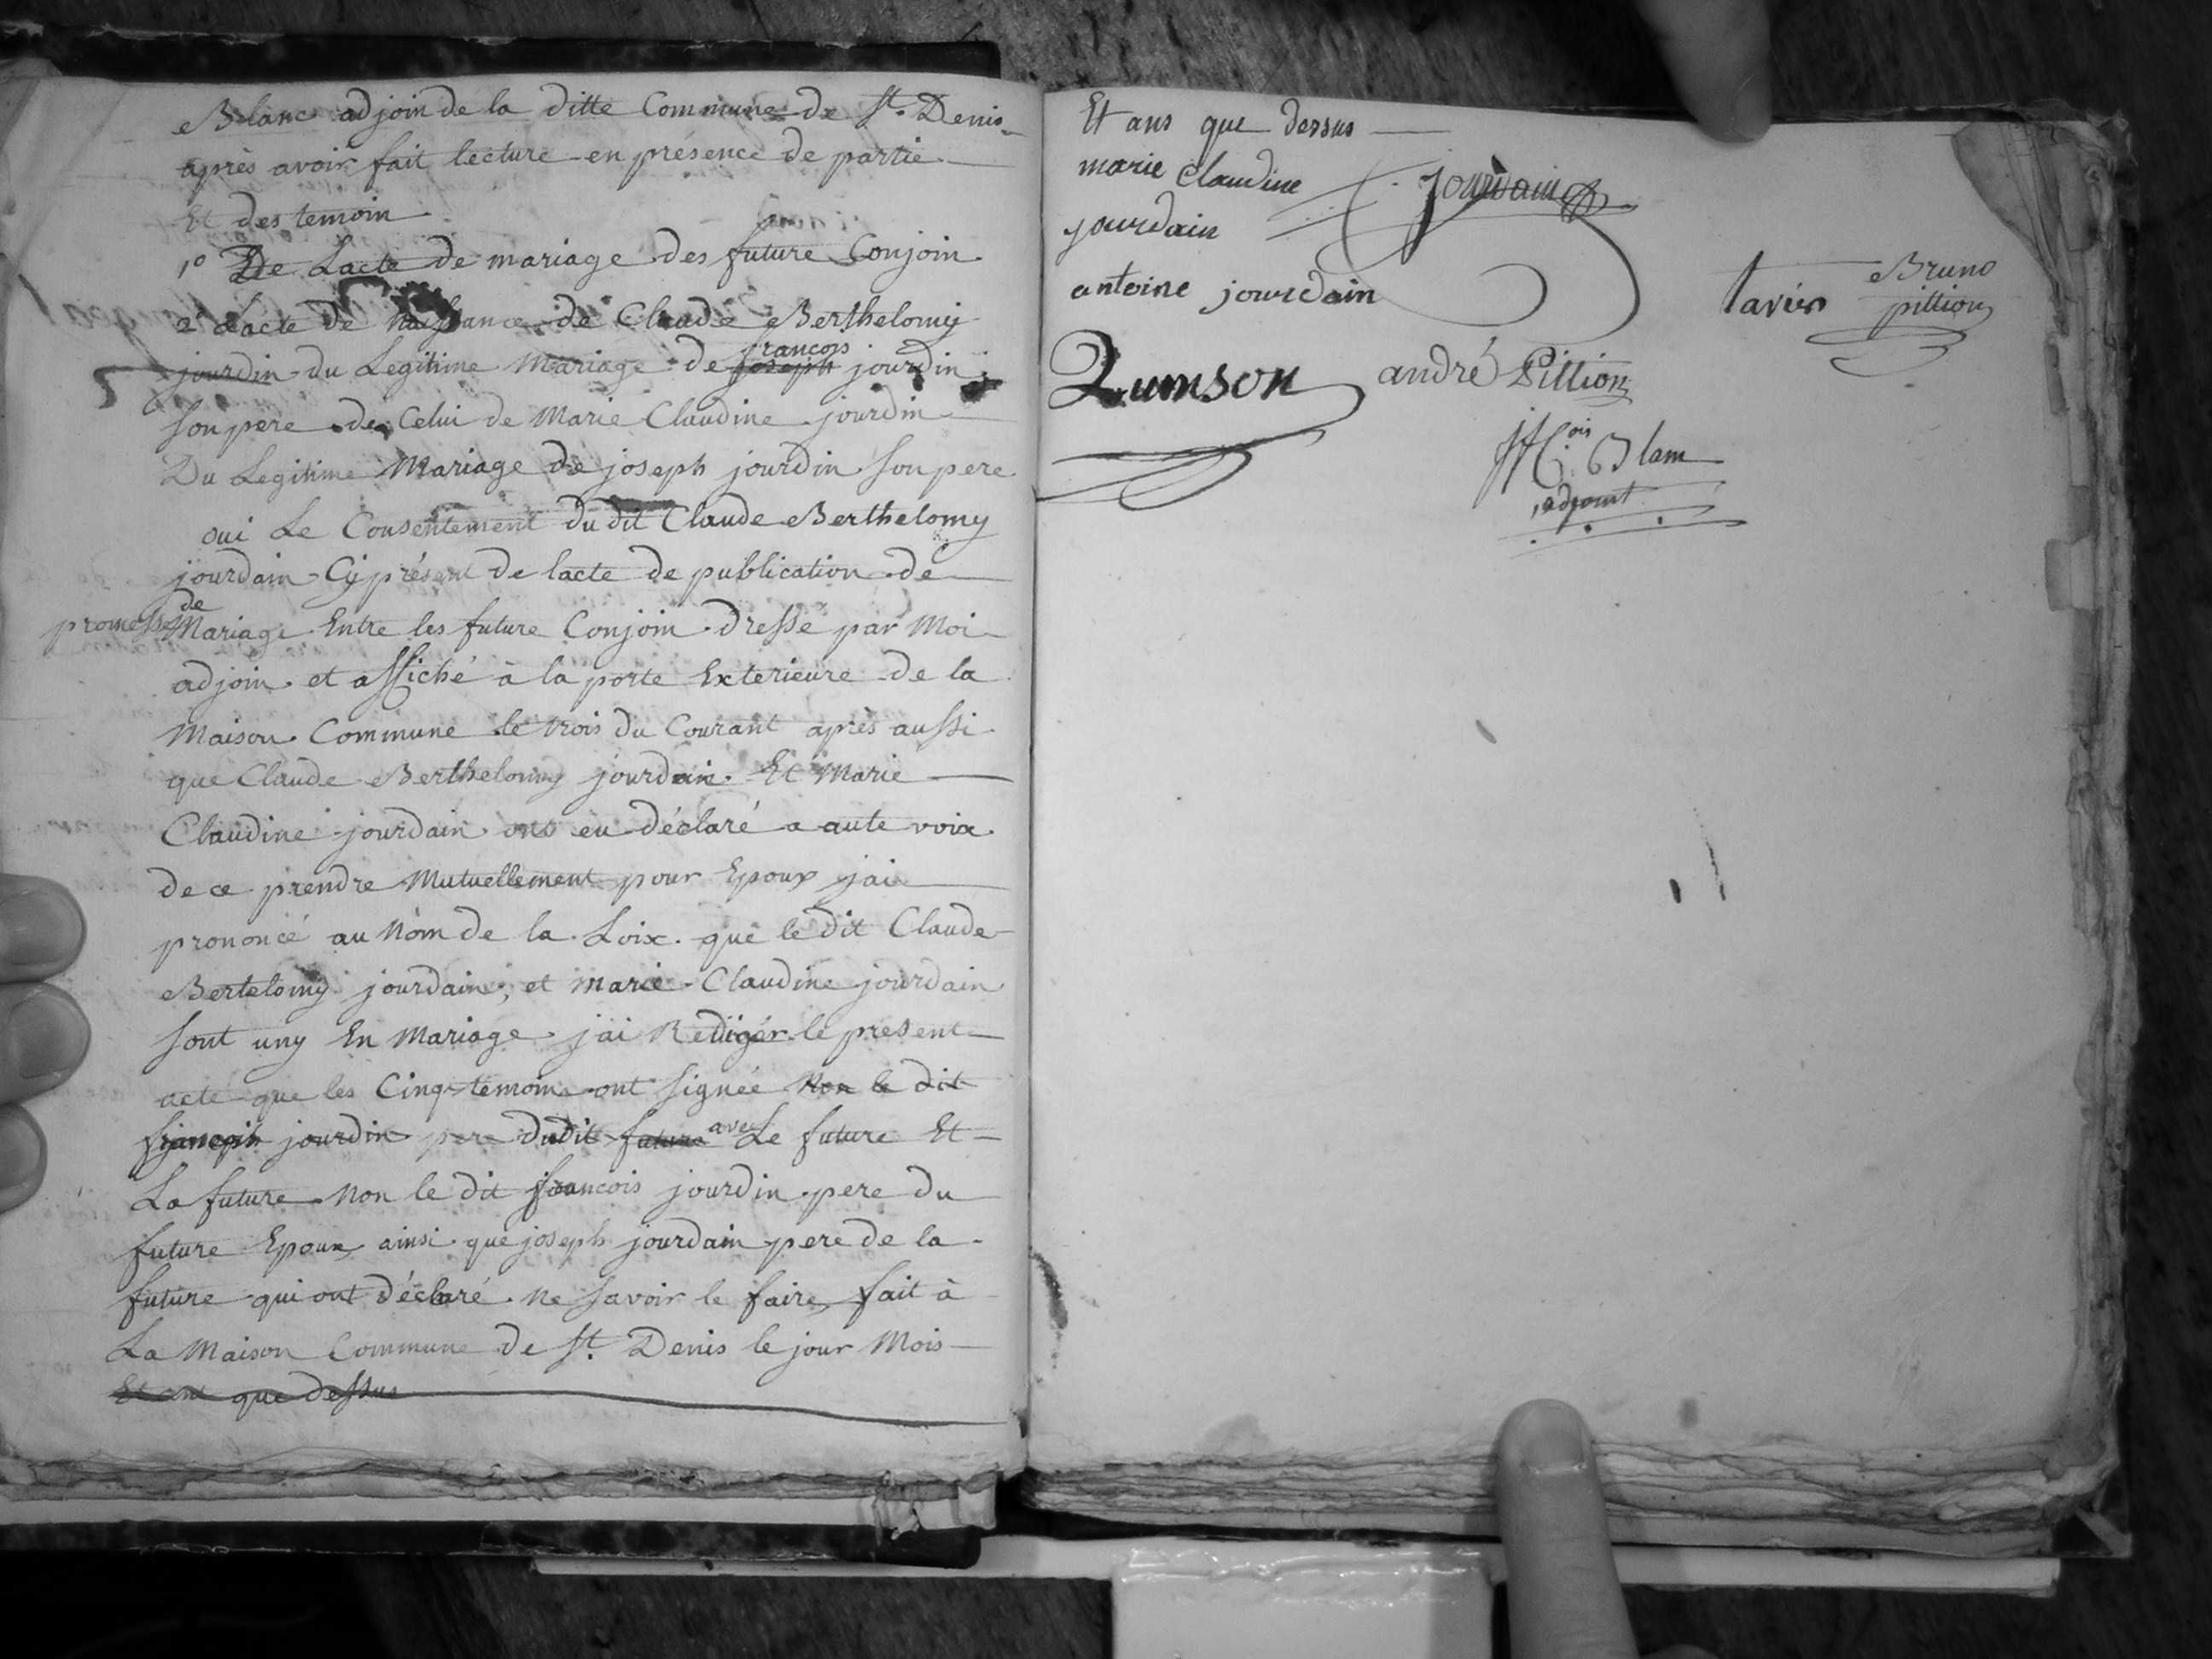 Blanc adjoin de la ditte Commune de St. Denis
après avoir fait lecture en présence de partie
Et des temoin
1o De Lacte de mariage des future Conjoin
2o Lacte de naissance de Claude Berthelomy
françois
jourdin du Legitime Mariage de joseph jourdin
son pere de Celui de Marie Claudine jourdin
Du Legitime Mariage de joseph jourdin son pere
oui Le Consentement du dit Claude Berthelomy
jourdain Cy présent de lacte de publication de
promesse de
Mariage Entre les future Conjoin dressé par Moi
adjoin et affiché à la porte Exterieure de la
Maison Commune le trois du Courant après aussi
que Claude Berthelomy jourdain Et Marie
Claudine jourdain ons eu déclaré a aute voix
de ce prendre Mutuellement pour Epoux jai
prononcé au Nom de la Loix que le dit Claude
Bertelomy jourdain, et Marie Claudine jourdain
sont uny En Mariage jai Rediger le present
acte que les Cinq temoins ont signée Non le dit
jourdin pere dudit future avec Le future Et
La future Non le dit francois jourdin pere du
future Epoux ainsi que joseph jourdain pere de la
future qui ont déclaré Ne savoir le faire, fait à
La Maison Commune de St. Denis le jour Mois
Et ans que dessus
Et ans que dessus
marie Claudine
jourdain
jourdain
antoine jourdain
tavier
Bruno
pillion
Zumson
andré Pillion
Blanc
adjoint